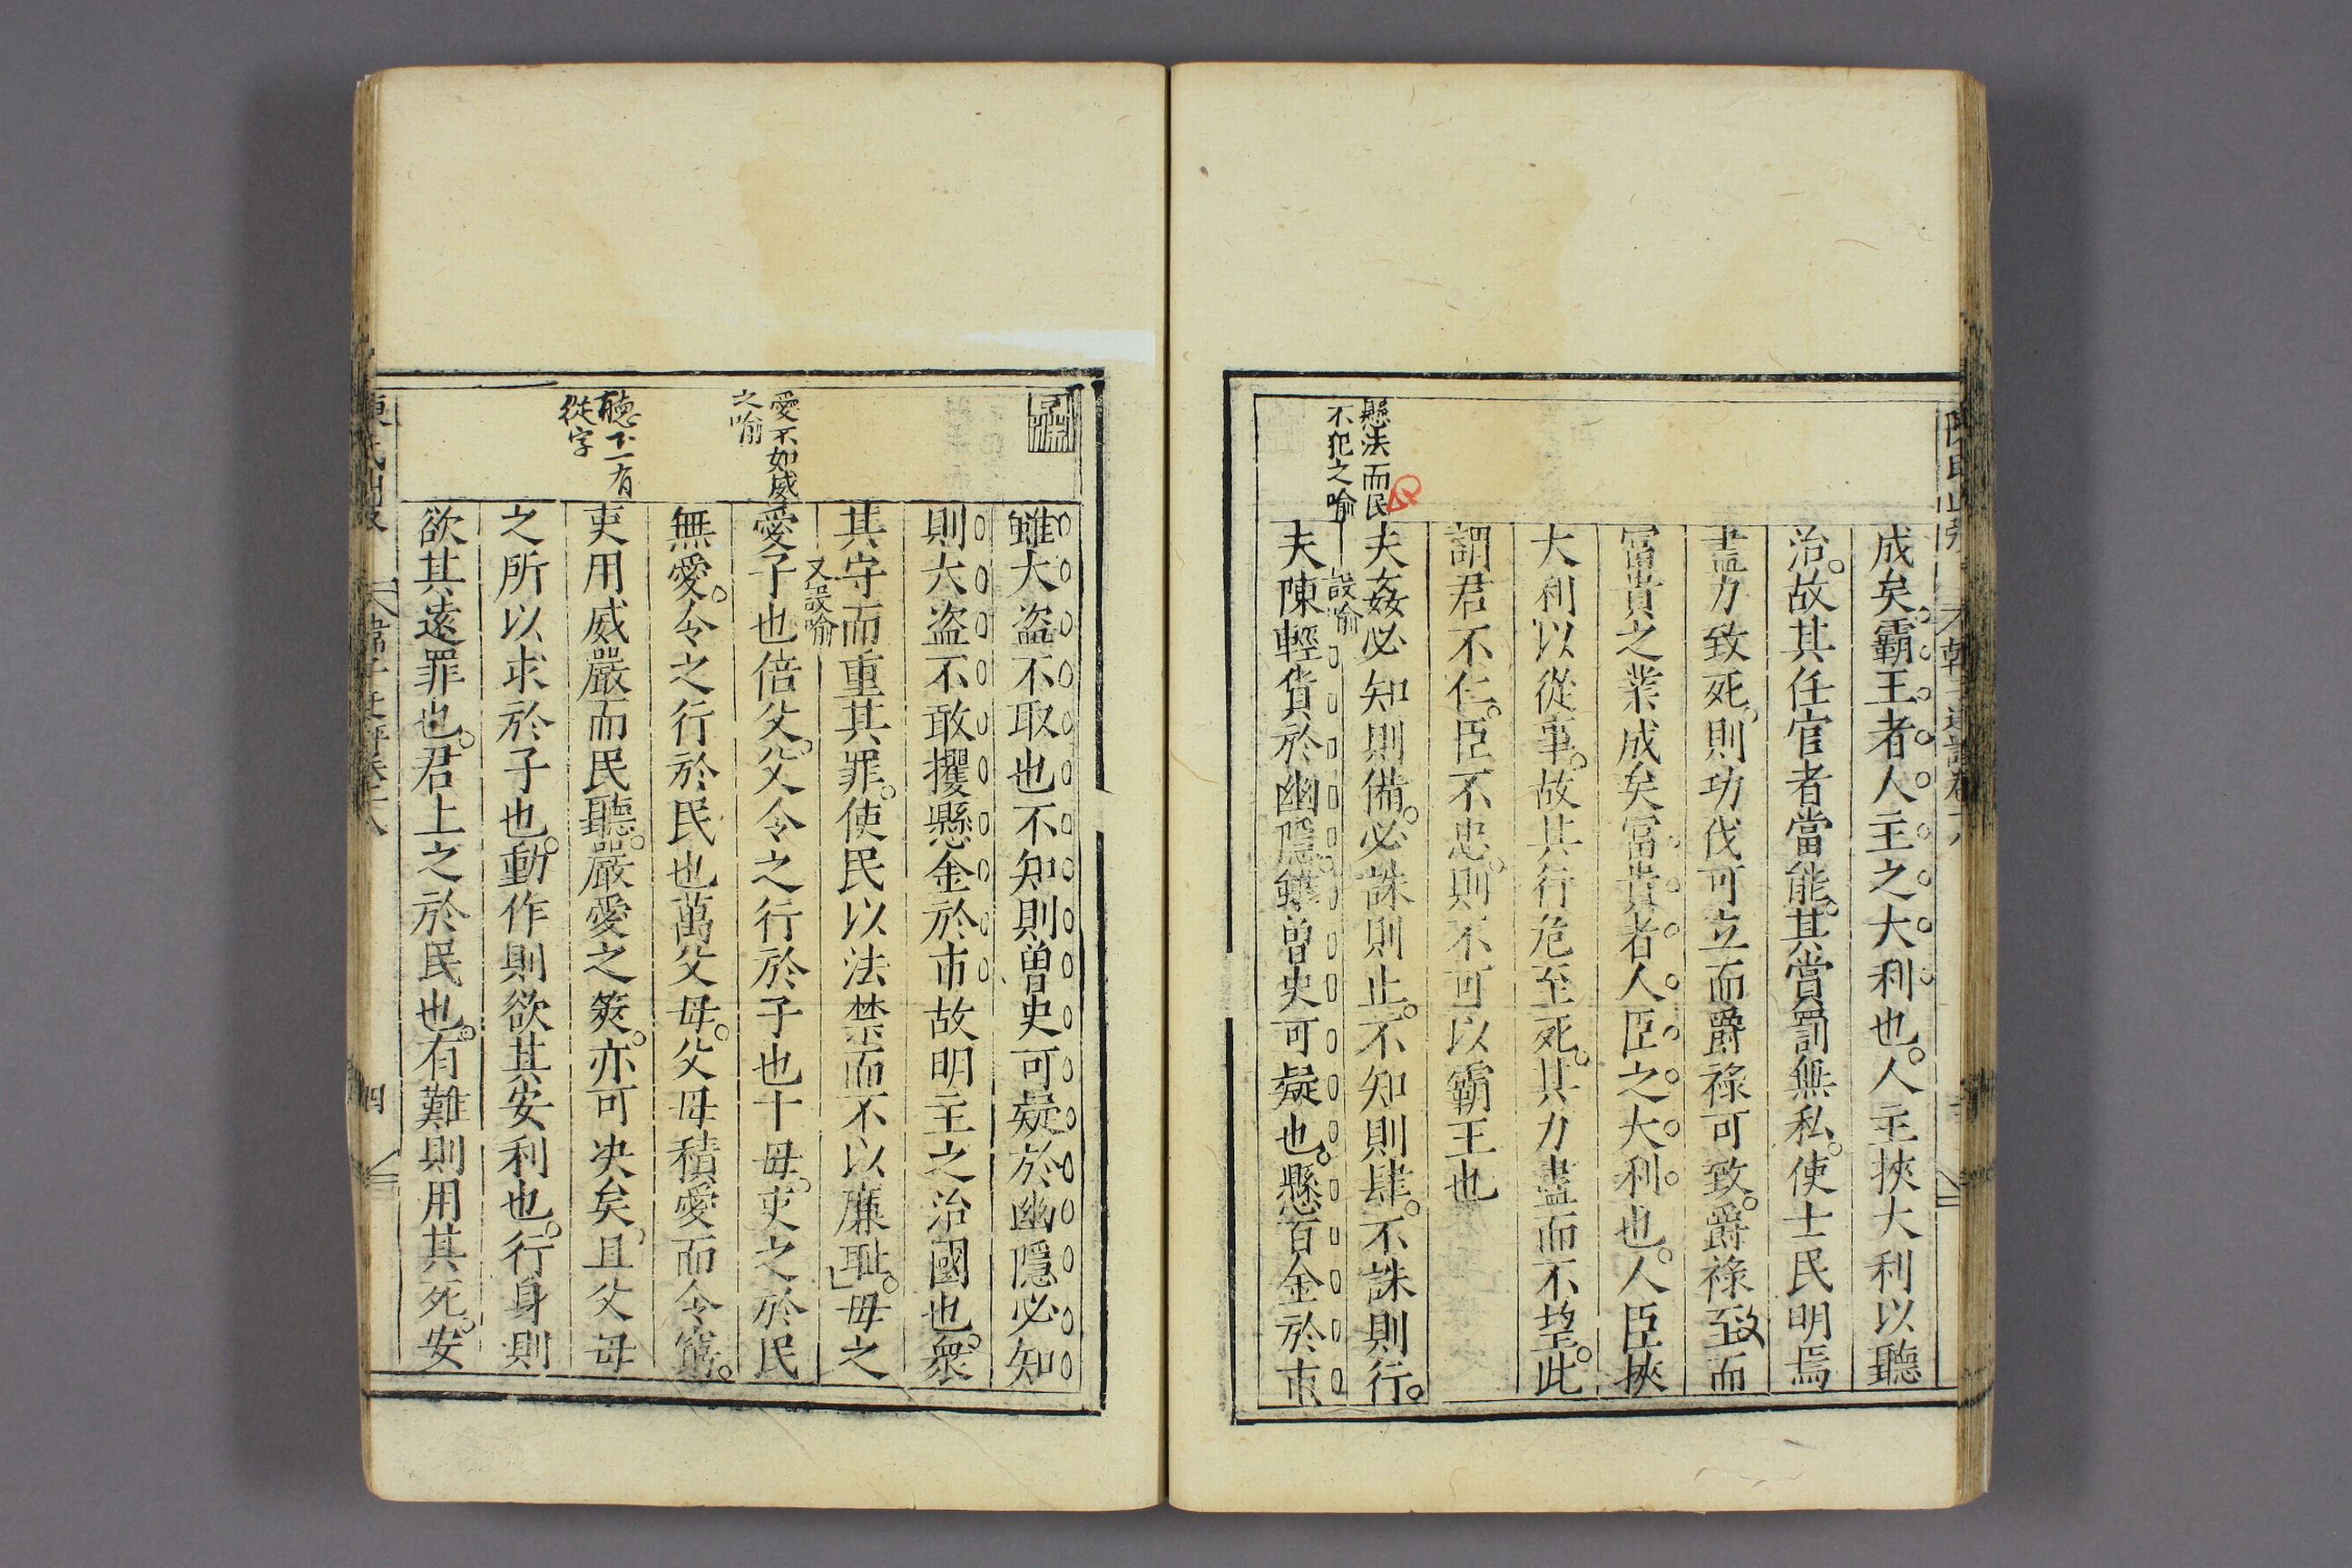 成矣霸王者人主之大利也人主挾大利以聽
治故其任官者當能其賞罰無私使士民明焉
盡力致死則功伐可立而爵祿可致爵祿至致而
富貴之業成矣富貴者人臣之大利也人臣挾
大利以從事故其行危至死其力盡而不望此
謂君不仁臣不忠則不可以霸王也
懸法而民
不犯之喻
夫姦必知則備必誅則止不知則肆不誅則行
設喻
夫陳輕貨於幽隱雖曾史可疑也懸百金於市
雖大盜不取也不知則曾史可疑於幽隱必知
則大盜不敢攫懸金於市故明主之治國也衆
其守而重其罪使民以法禁而不以廉耻母之
又設喻
愛不如威
之喻
愛子也倍父父令之行於子也十母吏之於民
無愛令之行於民也萬父母父母積愛而令窮
聽下一有
從字
吏用威嚴而民聽嚴愛之筴亦可决矣且父母
之所以求於子也動作則欲其安利也行身則
欲其遠罪也君上之於民也有難則用其死安
四